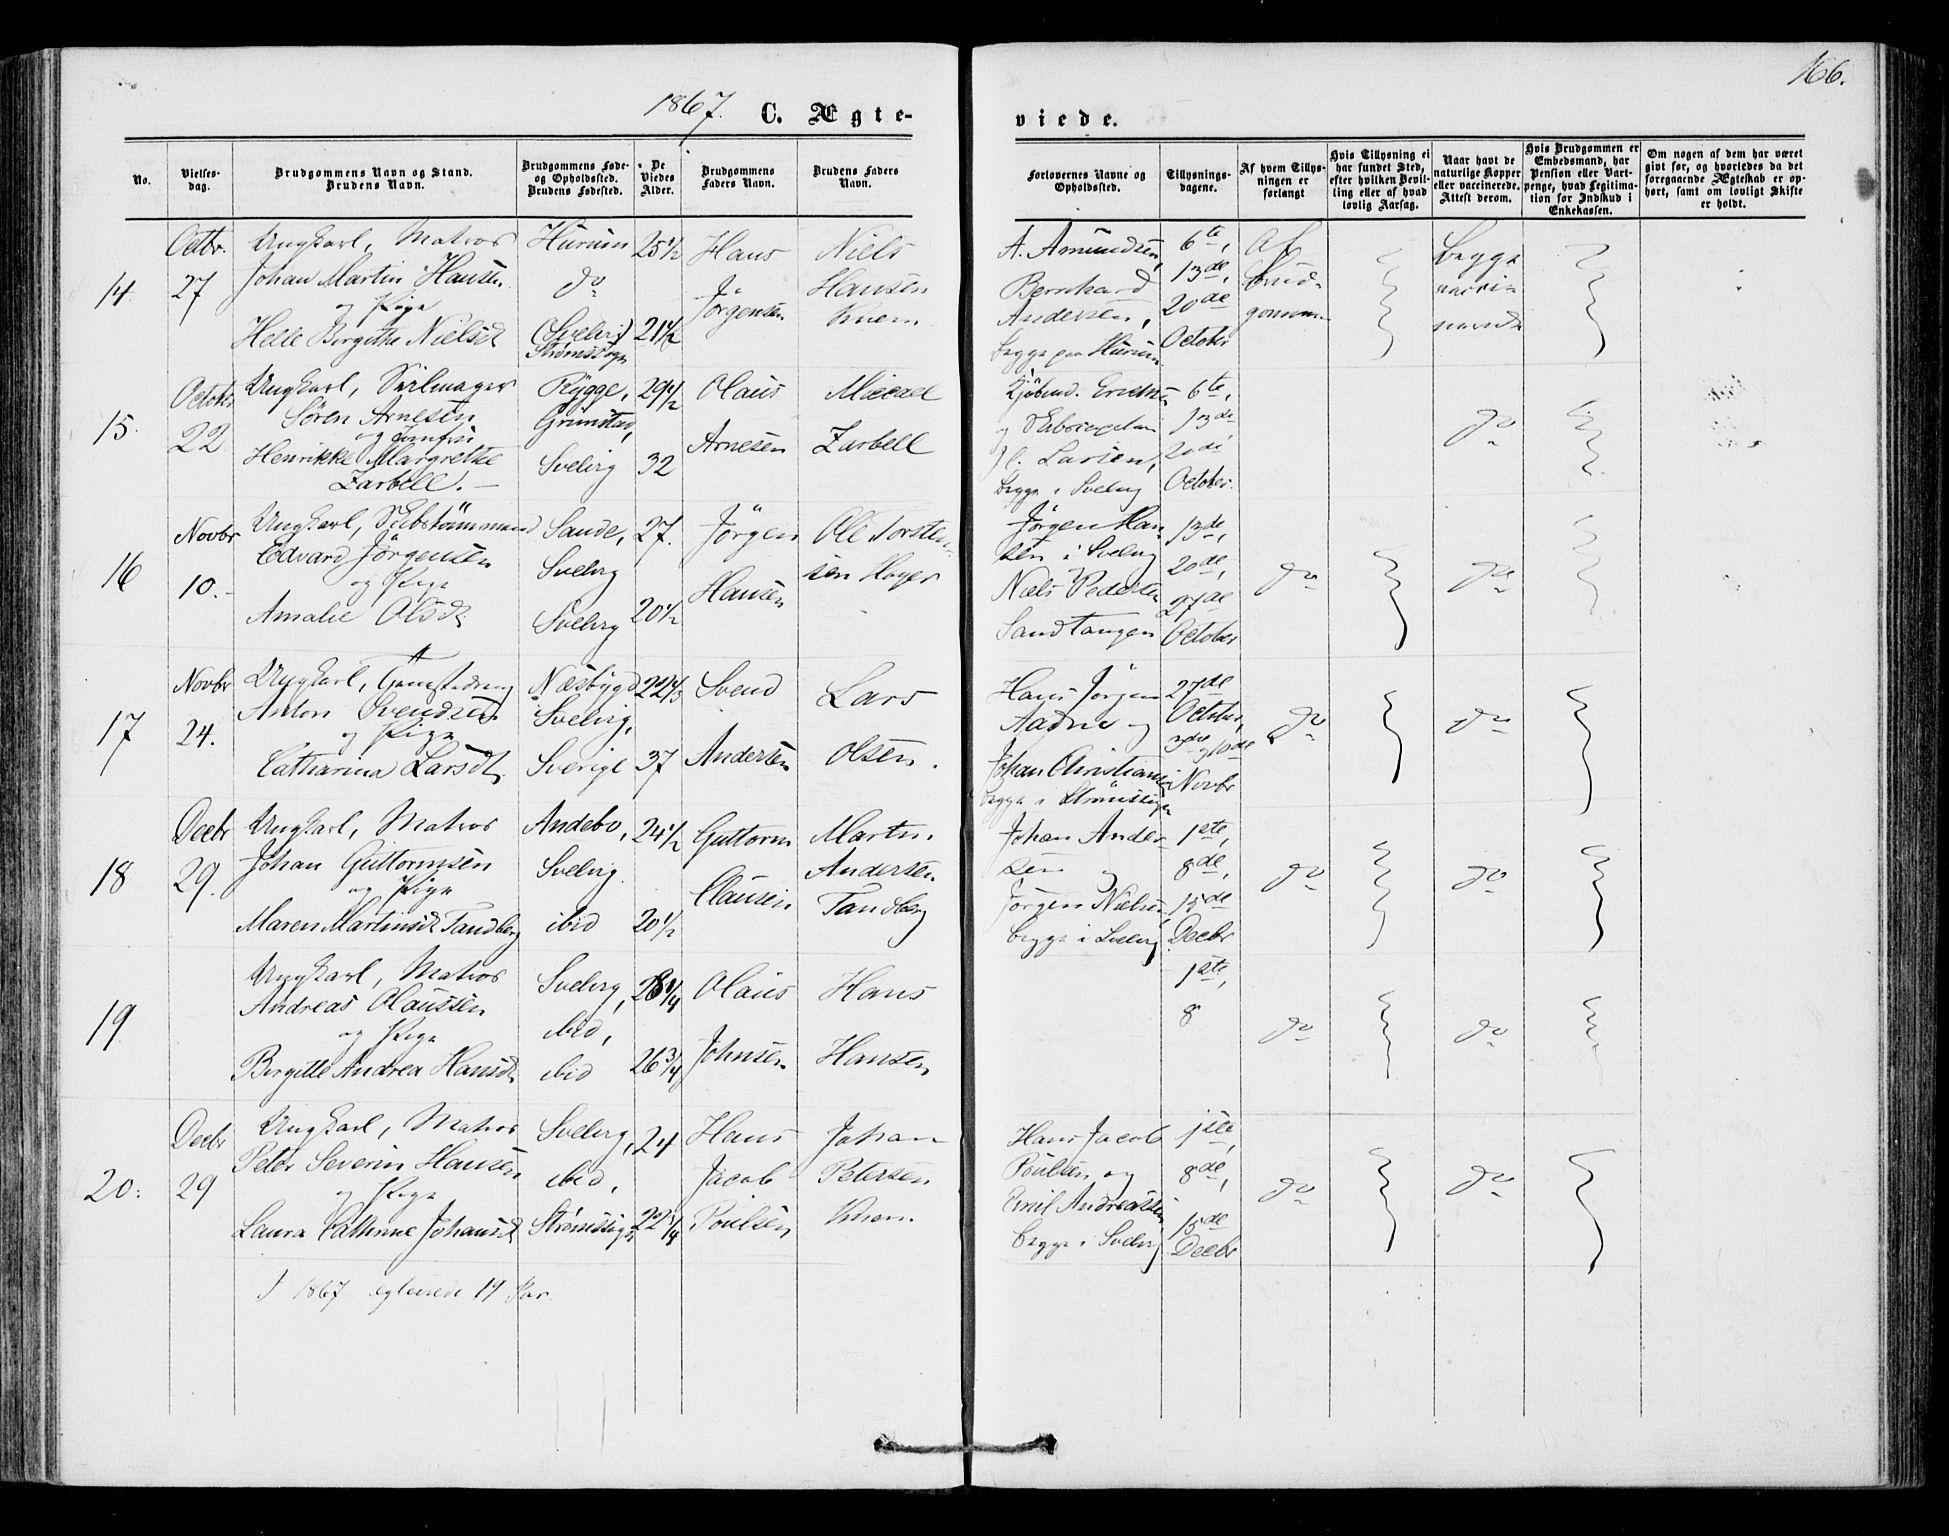 1867. C. Ægte-
viede.
166.
No.
Vielses-
dag.
Brudgommens Navn og Stand.
Brudens Navn.
Brudgommens Føde-
og Opholdssted.
Brudens Fødested.
De
Viedes
Alder.
Brudgommens
Faders Navn.
Brudens Faders
Navn.
Forlovernes Navne og
Opholdssted.
Tillysnings-
dagene.
Af hvem Tillys-
ningen er
forlangt
Hvis Tillysning ei
har fundet Sted,
efter hvilken Bevil-
ling eller af hvad
lovlig Aarsag.
Naar havt de
naturlige Kopper
eller vaccinerede.
Attest derom.
Hvis Brudgommen er
Embedsmand, har
Pension eller Vart-
penge, hvad Legitima-
tion for Indskud i
Enkekassen.
Om nogen af dem har været
gift før, og hvorledes da det
foregaaende Ægteskab er op-
hørt, samt om lovligt Skifte
er holdt.
14
Octbr.
27
Ungkarl, Matros
Johan Martin Hansen
og Pige
Helle Birgitte Nielsdt
Hurum
do
(Svelvig)
Strømssogn
25 1/2
21 1/2
Hans
Jörgensen
Niels
Hansen
Knem
A. Amundsen,
Bernhard
Andersen,
begge paa Hurum
6te,
13de,
20de
October
Af
Brud-
gommen
begge
vacci-
nerede
15.
October
22
Ungkarl, Seilmager
Sören Arnesen
og Jomfru
Henrikke Margrethe
Zarbell. -
Rygge,
Grimstad,
Svelvig
29 1/2
32
Olaus
Arnesen
Micael
Zarbell
Kjöbmd. Ericksen
og
Larsen,
begge i Svelvig
6te,
13de,
20de
October.
do
16
Novbr
10. -
Ungkarl, Skibstömmermand
Edvard Jörgensen
og Pige
Amalie Olsdt.
Sande,
Svelvig
Svelvig
27.
20 1/2
Jörgen
Hansen
Ole Torsten-
sen Hoyer
Jörgen Han-
sen i Svelvig
Niels Pedersen
Sandtangen
13de,
20de,
27de
October
do
do
17
Novbr
24.
Ungkarl,
Anton Svendsen
og Pige
Catharina Larsdt.
Næsbygd
Svelvig,
Sverige
22 1/3
37
Svend
Andersen
Lars
Olsen.
Hans Jörgen
Aadne og
Johan Christiansen
begge i Strömssogn
27de
October,
3die, 10de
Novbr
do
do
18
Decbr
29.
Ungkarl, Matros
Johan Guttormsen
og Pige
Maren Martinsdt Tandberg
Andebo,
Svelvig
ibid
24 1/2
20 1/2
Guttorm
Clausen
Martin
Andersen
Tandberg
Johan Ander-
sen og
Jörgen Nielsen
begge i Svelvig
1ste,
8de,
15de
Decbr
do
do
19
Ungkarl, Matros
Andreas Olaussen
og Pige
Birgitte Andrea Hansdt.
Svelvig,
ibid,
ibid
28 1/4
26 3/4
Olaus
Johnsen
Hans
Hansen
1ste,
8
do
do
20.
Decbr
29
Ungkarl, Matros
Peter Severin Hansen
og Pige
Laura Cathrine Johansdt
Svelvig,
ibid,
Strömssogn
24
22 1/4
Hans
Jacob
Poulsen
Johan
Petersen
Knem
Hans Jacob
Poulsen og
Emil Andreassen
begge i Svelvig
1ste,
8de,
15de
Decbr
do
do
I 1867 egteviede 19 Par.